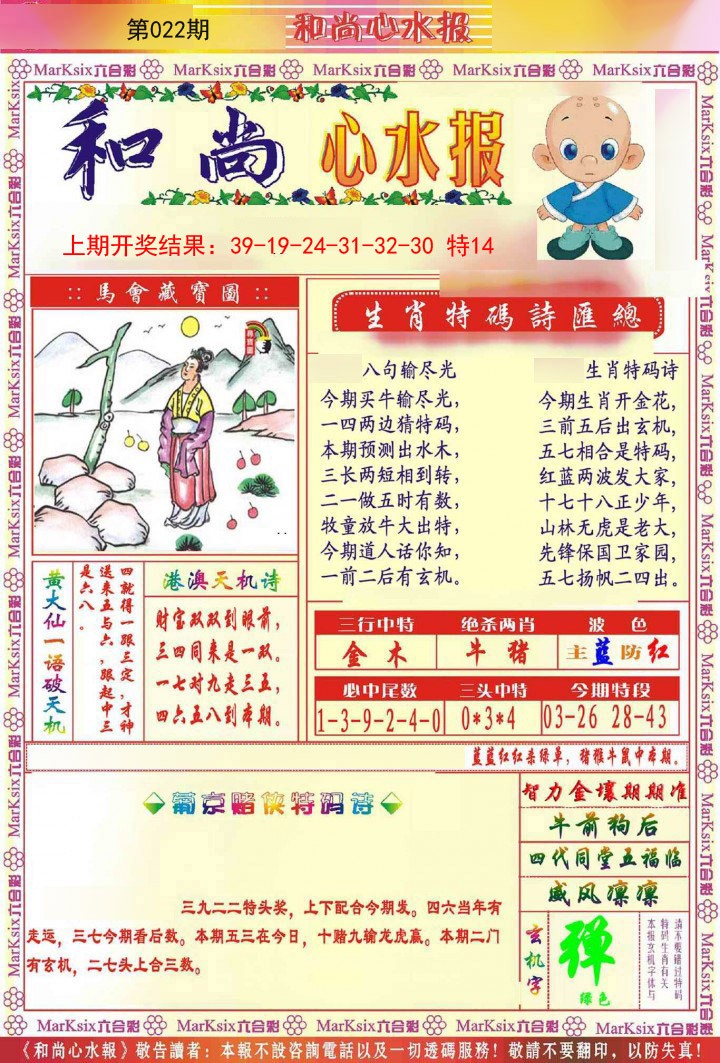 第022期
和尚心水报
MarKsix六合彩 MarKsix六合彩 MarKsix六合彩 MarKsix六合彩 MarKsix六合彩
和尚 心水报
上期开奖结果：39-19-24-31-32-30 特14
::馬會藏寶圖::
尋寶圖
生肖特碼詩匯總
八句输尽光
今期买牛输尽光，
一四两边猜特码，
本期预测出水木，
三长两短相到转，
二一做五时有数，
牧童放牛大出特，
今期道人话你知，
一前二后有玄机。
生肖特码诗
今期生肖开金花，
三前五后出玄机，
五七相合是特码，
红蓝两波发大家，
十七十八正少年，
山林无虎是老大，
先锋保国卫家园，
五七扬帆二四出。
黄大仙一语破天机
四就得一跟三定，才种
送来五与六，跟起中三
是六八。
港澳天机诗
财宝双双到眼前，
三四同来是一双。
一七对九走三五，
四六五八到本期。
三行中特 绝杀两肖 波 色
金 木 牛 猪 主蓝防红
必中尾数 三头中特 今期特段
1-3-9-2-4-0 0*3*4 03-26 28-43
蓝蓝红红杀绿单，猪猴牛鼠中本期。
◆葡京赌侠特码诗◆
三九二二特头奖，上下配合今期发。四六当年有
走运，三七今期看后数。本期五三在今日，十赌九输龙虎赢。本期二门
有玄机，二七头上合三数。
智力金壤期期准
牛前狗后
四代同堂五福临
威风凛凛
玄机字
弹
绿色
请不要错过特码
特码生肖有关
本报玄机字体与
MarKsix六合彩 MarKsix六合彩 MarKsix六合彩 MarKsix六合彩 MarKsix六合彩
《和尚心水報》敬告讀者：本報不設咨詢電話以及一切透碼服務！敬請不要翻印，以防失真！